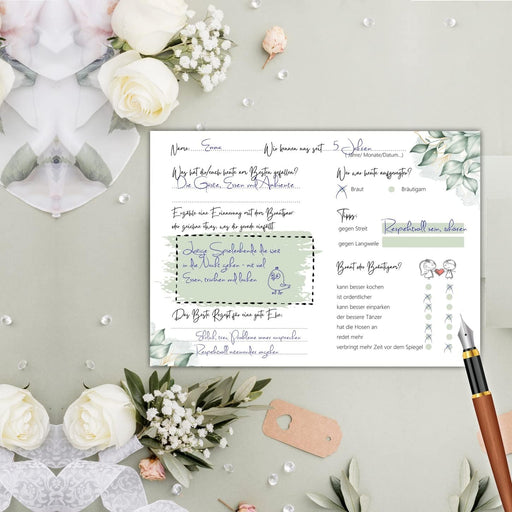 Name: Emma Wir kennen uns seit: 5 Jahren
(Jahre/ Monate/Datum...)
Was hat dir/euch heute am Besten gefallen?
Die Gäste, Essen und Ambiente
Wer war heute aufgeregter?
Braut Bräutigam
Erzähle eine Erinnerung mit dem Brautpaar
oder zeichne etwas, was dir grade einfällt
Tipps:
gegen Streit Respektvoll sein, zuhören
gegen Langweile
Lustige Spieleabende die weit
in die Nacht gehen - mit viel
Essen, trinken und lachen
Braut oder Bräutigam?
kann besser kochen
ist ordentlicher
kann besser einparken
der bessere Tänzer
hat die Hosen an
redet mehr
verbringt mehr Zeit vor dem Spiegel
Das Beste Rezept für eine gute Ehe:
Ehrlich, treu, Probleme immer ansprechen
Respektvoll miteinander umgehen